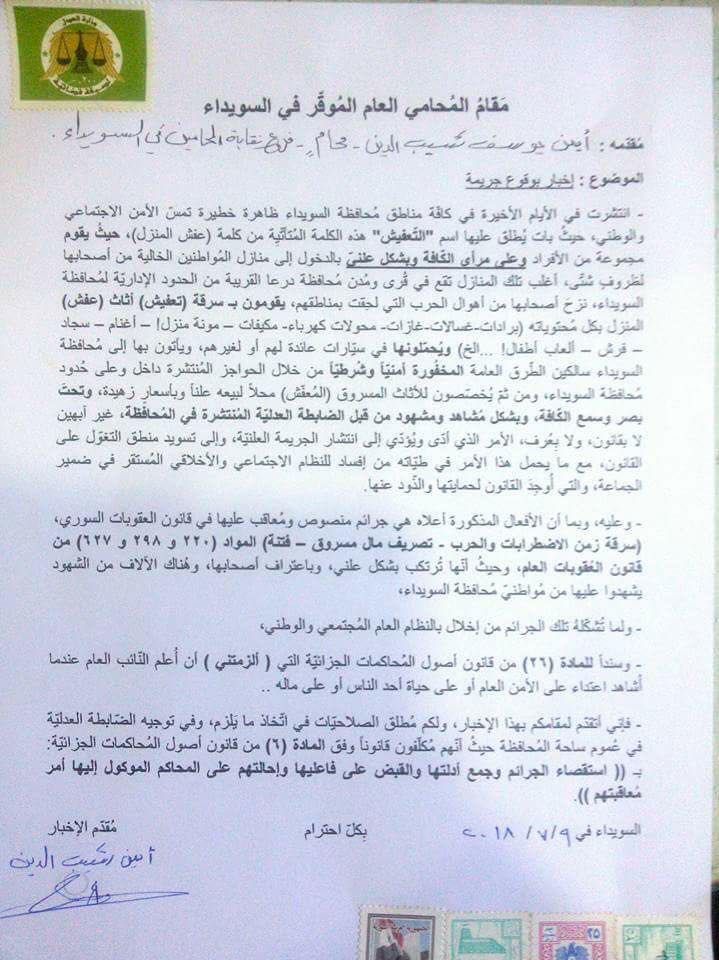 وزارة العدل
مَقامُ المحامي العام المُوقَّر في السويداء
مُقدّمه : أيمن يوسف شيب الدين - محامٍ - فرع نقابة المحامين في السويداء.
الموضوع : إخبار بوقوع جريمة
- انتشرت في الأيام الأخيرة في كافّة مناطق مُحافظة السويداء ظاهرة خطيرة تمسّ الأمن الاجتماعي
والوطني، حيثُ بات يُطلق عليها اسم "التّعفيش" هذه الكلمة المُتأتّية من كلمة (عفش المنزل)، حيثُ يقوم
مجموعة من الأفراد وعلى مرأى الكافة وبشكل علنيّ بالدخول إلى منازل المُواطنين الخالية من أصحابها
لظروفٍ شتّى، أغلب تلك المنازل تقع في قُرى ومُدن محافظة درعا القريبة من الحدود الإداريّة لمُحافظة
السويداء، نزحَ أصحابها من أهوال الحرب التي لحِقت بمناطقهم، يقومون بـ سرقة (تعفيش) أثاث (عفش)
المنزل بكل مُحتوياته (برادات-غسالات-غازات- محولات كهرباء- مكيفات – مونة منزل! – أغنام – سجاد
– فرش – ألعاب أطفال! ...الخ) ويُحمّلونها في سيّارات عائدة لهم أو لغيرهم، ويأتون بها إلى مُحافظة
السويداء سالكين الطّرق العامة المخفُورة أمنيّاً وشُرطيّاً من خلال الحواجز المُنتشرة داخل وعلى حُدود
مُحافظة السويداء، ومن ثمّ يُخصّصون للأثاث المسروق (المُعفّش) محلاً لبيعه علناً وبأسعارٍ زهيدة، وتحتَ
بصر وسمع الكافة، وبشكل مُشاهد ومشهود من قبل الضابطة العدليّة المُنتشرة في المُحافظة، غير آبهين
لا بقانون، ولا بعُرف، الأمر الذي أدّى ويُؤدّي إلى انتشار الجريمة العلنيّة، وإلى تسويد منطق التغوّل على
القانون، مع ما يحمل هذا الأمر في طيّاته من إفساد للنظام الاجتماعي والأخلاقي المُستقر في ضمير
الجماعة، والتي أُوجِدَ القانون لحمايتها والذّود عنها.
- وعليه، وبما أن الأفعال المذكورة أعلاه هي جرائم منصوص ومُعاقب عليها في قانون العقوبات السوري،
(سرقة زمن الاضطرابات والحرب - تصريف مال مسروق – فتنة) المواد (٢٢٠ و ٢٩٨ و ٦٢٧) من
قانون العُقوبات العام، وحيثُ أنّها تُرتكب بشكل علني، وباعتراف أصحابها، وهُناك الآلاف من الشهود
يشهدوا عليها من مُواطنيّ مُحافظة السويداء،
- ولما تُشكّلهُ تلك الجرائم من إخلال بالنظام العام المُجتمعي والوطني،
- وسنداً للمادة (٢٦) من قانون أصول المُحاكمات الجزائيّة التي ( ألزمتني ) أن أُعلم النّائب العام عندما
أُشاهد اعتداء على الأمن العام أو على حياة أحد الناس أو على ماله ..
- فإني أتقدّم لمقامكم بهذا الإخبار، ولكم مُطلق الصلاحيّات في اتّخاذ ما يَلزم، وفي توجيه الضّابطة العدليّة
في عُموم ساحة المُحافظة حيثُ أنّهم مُكلّفون قانوناً وفق المادة (٦) من قانون أصول المُحاكمات الجزائيّة:
بـ (( استقصاء الجرائم وجمع أدلتها والقبض على فاعليها وإحالتهم على المحاكم الموكول إليها أمر
مُعاقبتهم )).
السويداء في ٩ / ٧ / ٢٠١٨ بِكلّ احترام مُقدّم الإخبار
أيمن شيب الدين
٢٥